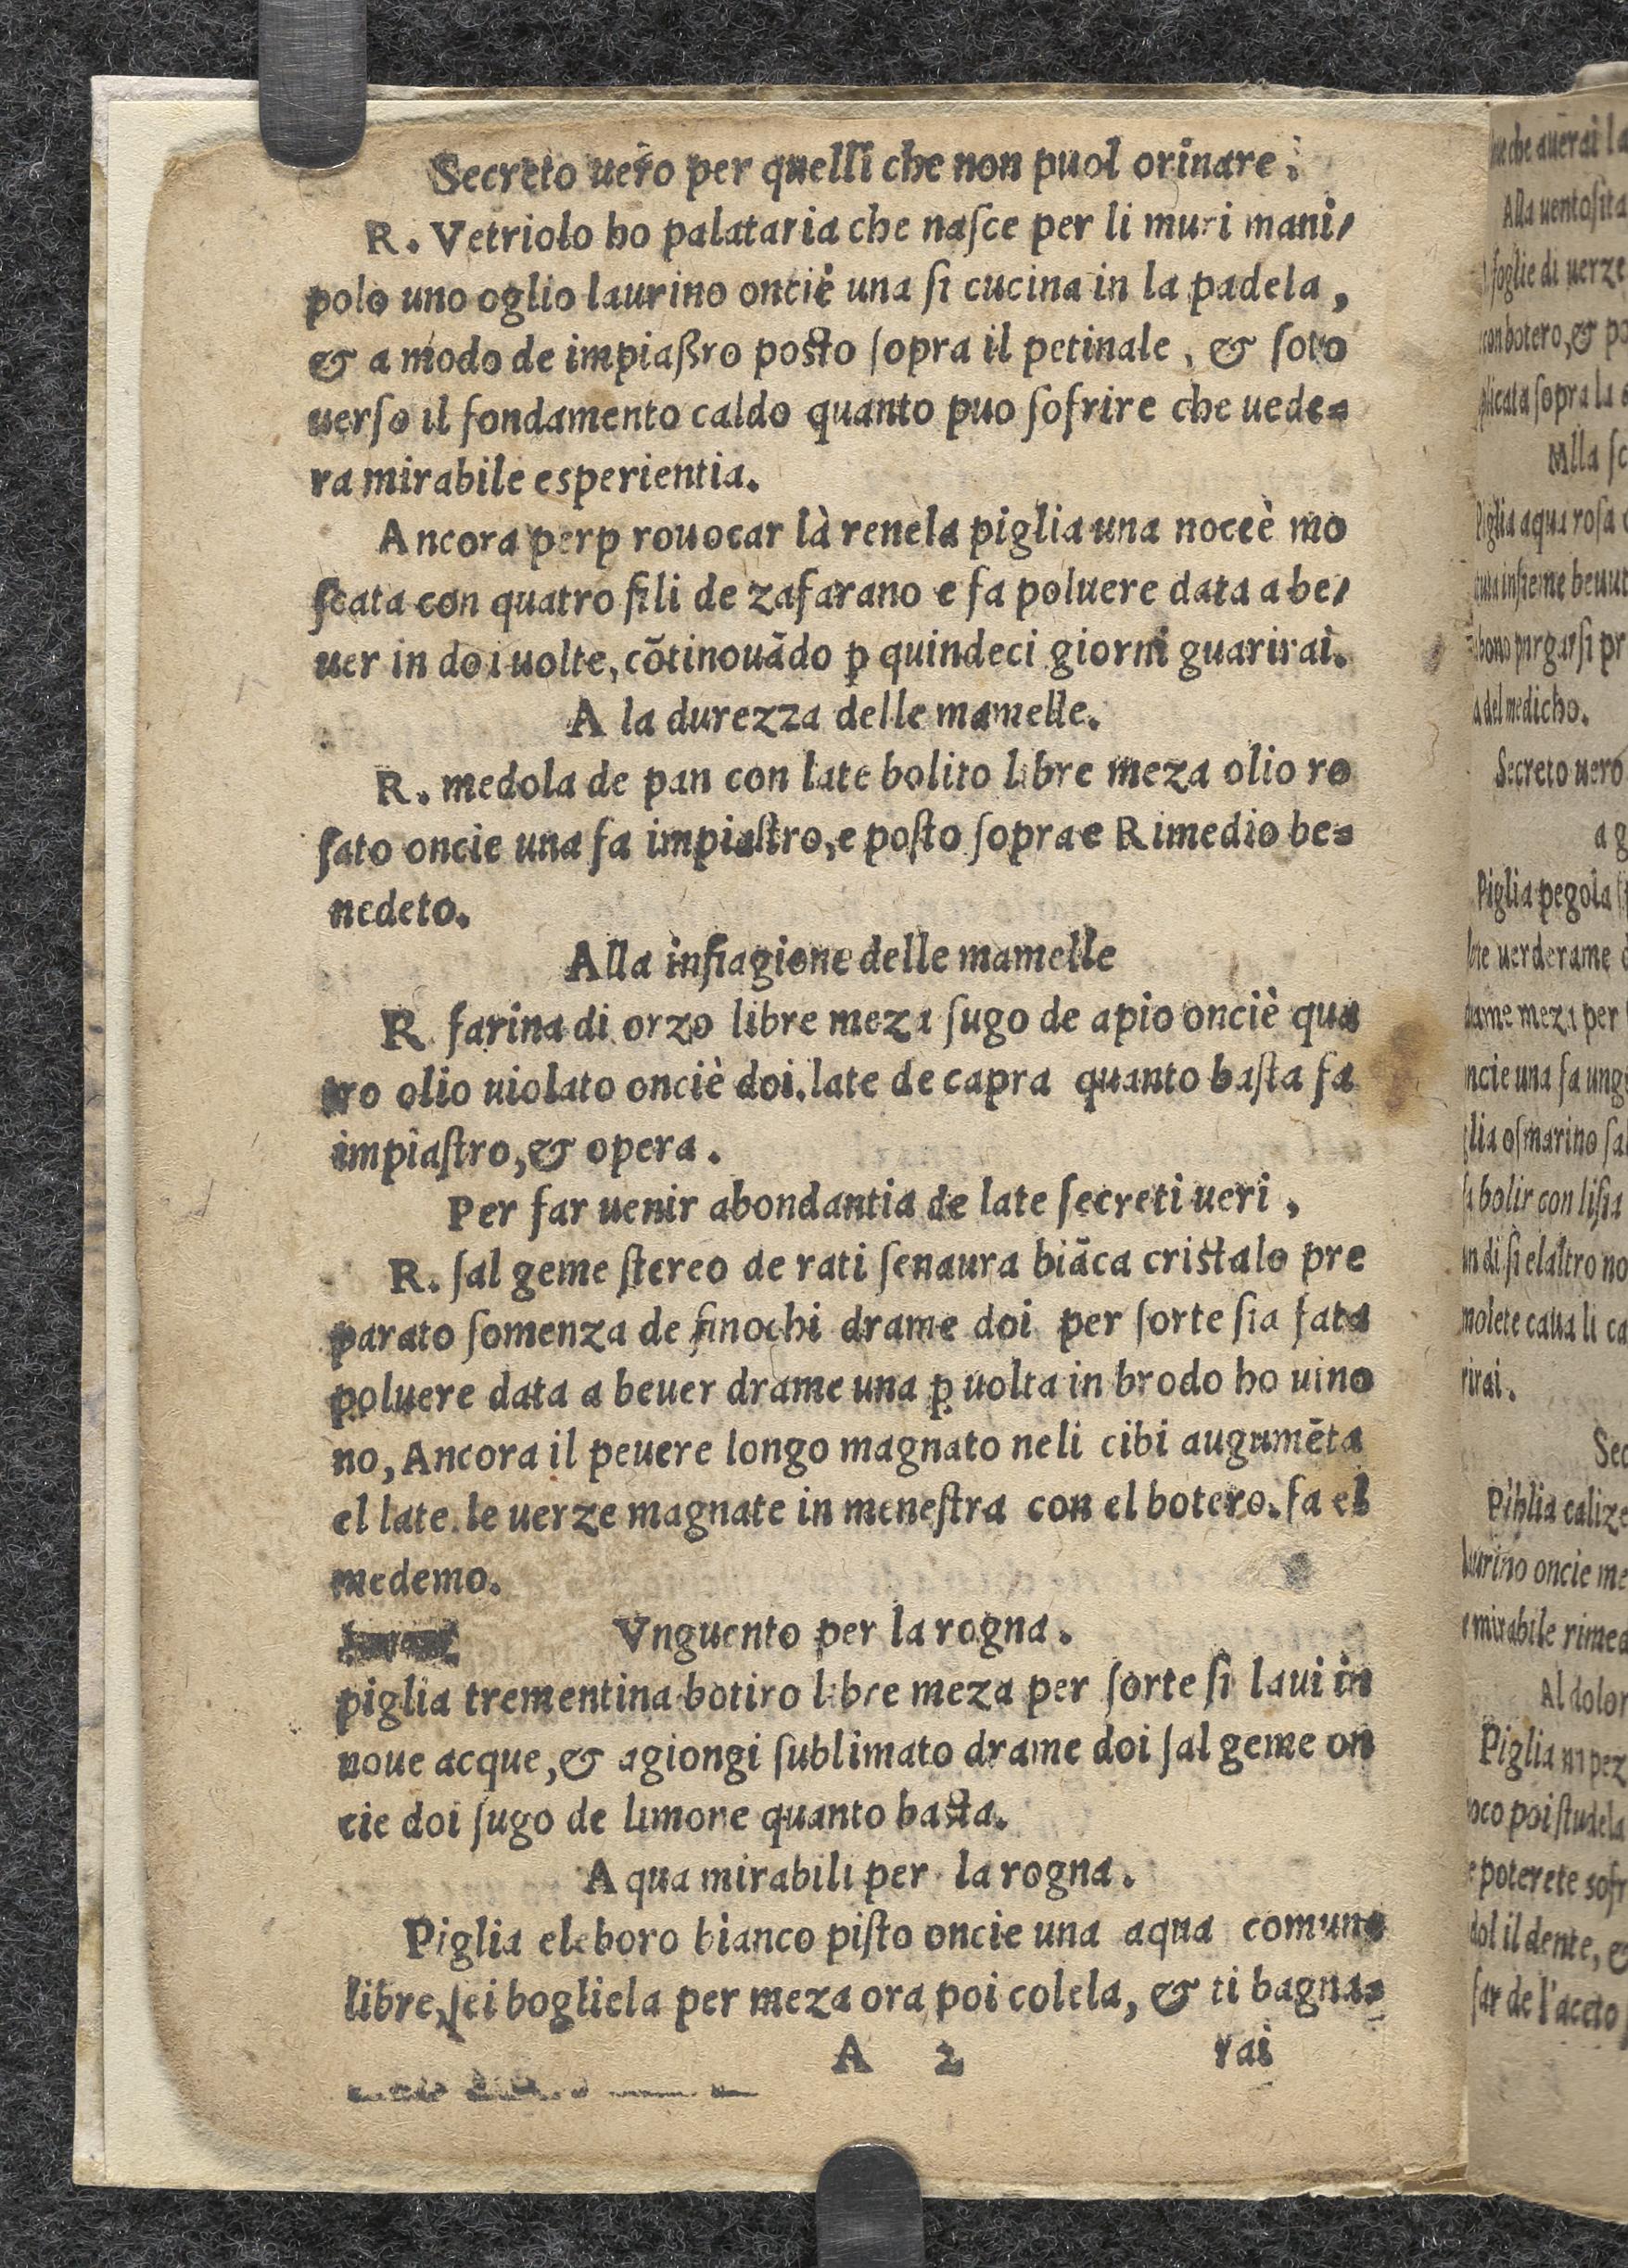 Secreto uero per quelli che non puol orinare.
R. Vetriolo ho palataria che naſce per li muri mani/
polo uno oglio laurino onciè una ſi cucina in la padela,
& a modo de impiaßro poſto ſopra il petinale, & ſoto
uerſo il fondamento caldo quanto puo ſofrire che uede=
ra mirabile esperientia.
Ancora perp rouocar là renela piglia una noceè mo
ſcata con quatro fili de zafarano e fa poluere data a be/
uer in doi uolte, cōtinouādo ꝑ quindeci giorni guarirai.
A la durezza delle mamelle.
R. medola de pan con late bolito libre meza olio ro
ſato oncie una fa impiaſtro, e poſto ſopra e Rimedio be=
nedeto.
Alla infiagione delle mamelle
R farina di orzo libre meza ſugo de apio onciè qua
tro olio uiolato onciè doi. late de capra quanto baſta fa
impiaſtro, & opera.
Per far uenir abondantia de late ſecreti ueri,
R. ſal geme ſtereo de rati ſenaura biāca criſtalo pre
parato ſomenza de finochi drame doi per ſorte ſia fata
poluere data a beuer drame una ꝑ uolta in brodo ho uino
no, Ancora il peuere longo magnato neli cibi augumēta
el late. le uerze magnate in meneſtra con el botero. fa el
medemo.
Vnguento per la rogna.
piglia trementina botiro libre meza per ſorte ſi laui in
noue acque, & agiongi ſublimato drame doi ſal geme on
cie doi ſugo de limone quanto baſta.
A qua mirabili per la rogna.
Piglia eleboro bianco piſto oncie una aqua comune
libre, ſei bogliela per meza ora poi colela, & ti bagna=
A 2 rai
che auerai la
Alla uentoſita
foglie di uerze
con botero, & po
plicata ſopra la
Mlla ſc
Piglia aqua roſa
inſieme beuut
bono purgarſi pr
del medicho.
Secreto uero
a g
Piglia pegola
uerderame
drame meza per
oncie una fa ung
oſmarino ſal
fa bolir con liſia
un di ſi elaltro no
molete caua li ca
rirai.
Sec
Pihlia calize
laurino oncie me
e mirabile rimed
Al dolor
Piglia un pez
poco poi ſtudela
e poterete sofr
dol il dente, &
far de l'aceto